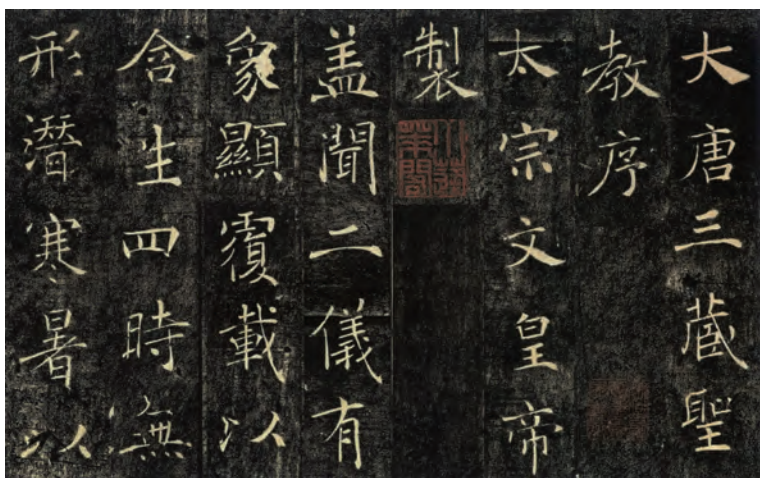 大唐三蔵聖
教序
太宗文皇帝
製
盖聞二儀有
象顯覆載以
含生四時無
形潜寒暑以